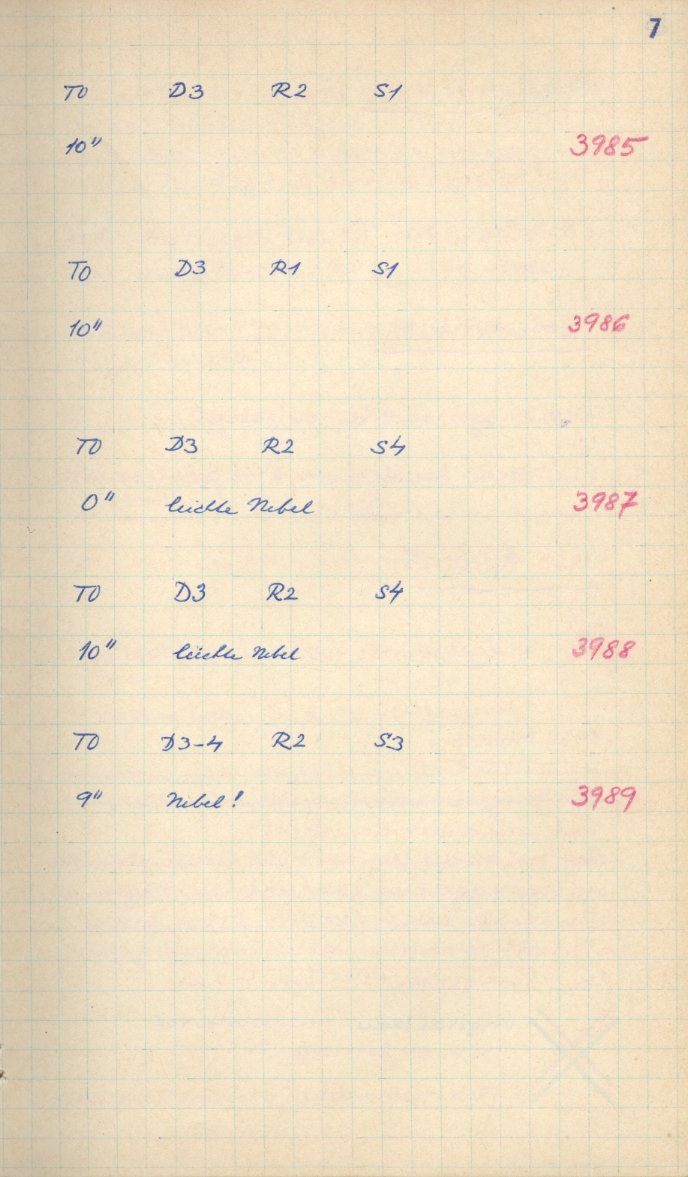 7
T0 D3 R2 S1
10" 3985
T0 D3 R1 S1
10" 3986
T0 D3 R2 S4
0" leichte Nebel 3987
T0 D3 R2 S4
10" leichte Nebel 3988
T0 D3-4 R2 S3
9" Nebel! 3989